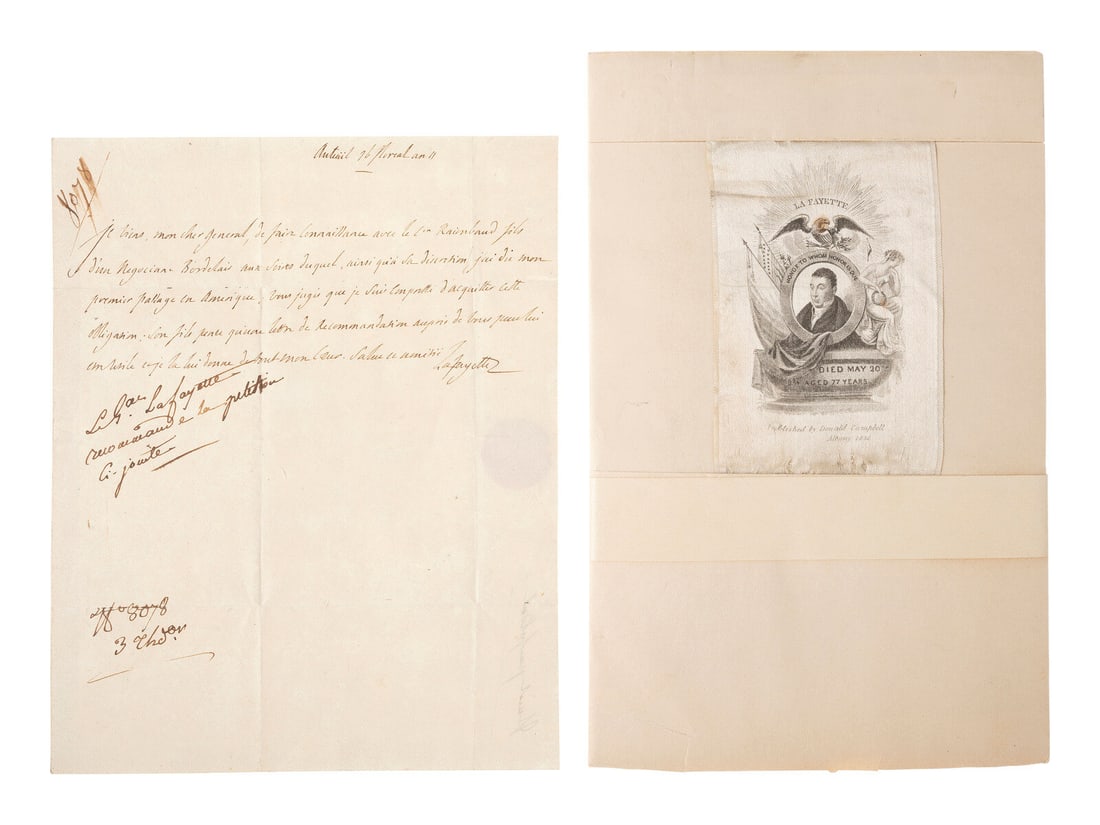 Auteuil 26 floreal an 11
8078
je viens, mon cher general, de faire Connaissance avec le Cen Raimbaud fils
d'un Negociant Bordelais aux Soins duquel, ainsi qu'a Sa discretion j'ai dû mon
premier passage en Amérique; Vous jugés que je Suis empressé d'acquitter cette
Obligation; Son fils pense qu'une lettre de Recommandation auprès de Vous peut lui
etre utile et je la lui donne de tout mon Cœur. Salut et amitié
Lafayette
Le Gal Lafayette
recommande la petition
Ci-jointe
No 8078
3
LA FAYETTE
HONOR TO WHOM HONOR IS DUE
DIED MAY 20
AGED 77 YEARS
Published by Donald Campbell
Albany